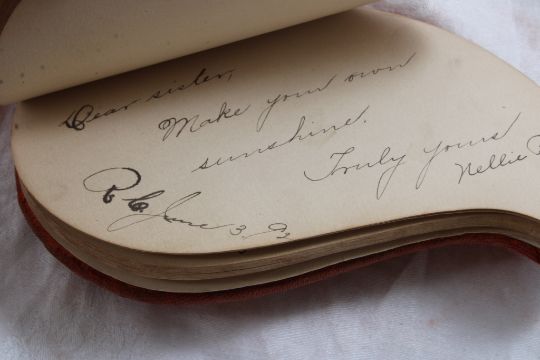 Dear sister,
Make your own
sunshine.
Truly yours
Nellie
R. C. June 3, 93